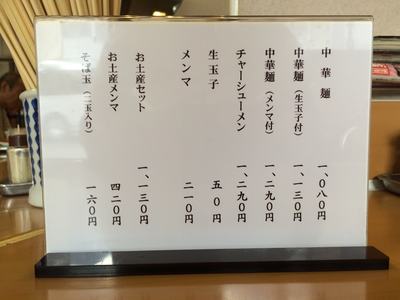 中華麺 一、〇八〇円
中華麺（生玉子付） 一、一三〇円
中華麺（メンマ付） 一、二九〇円
チャーシューメン 一、二九〇円
生玉子 五〇円
メンマ 二一〇円
お土産セット 一、一三〇円
お土産メンマ 四二〇円
そば玉（二玉入り） 一六〇円